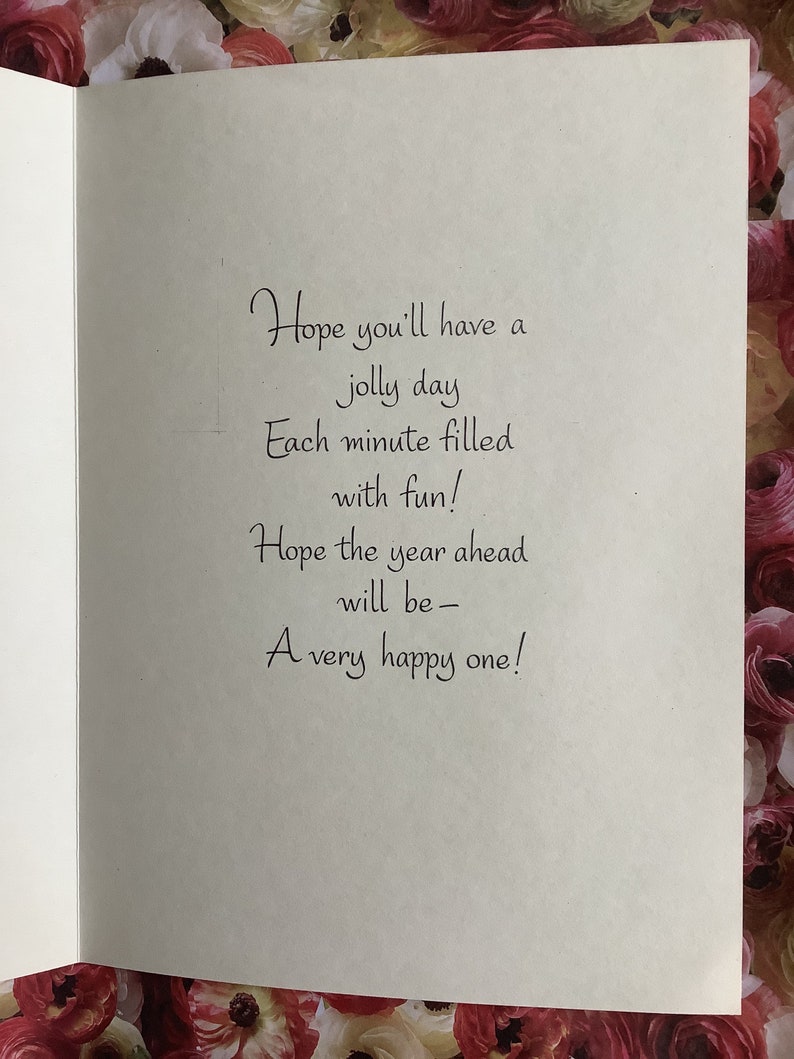 Hope you'll have a
jolly day
Each minute filled
with fun!
Hope the year ahead
will be —
A very happy one!